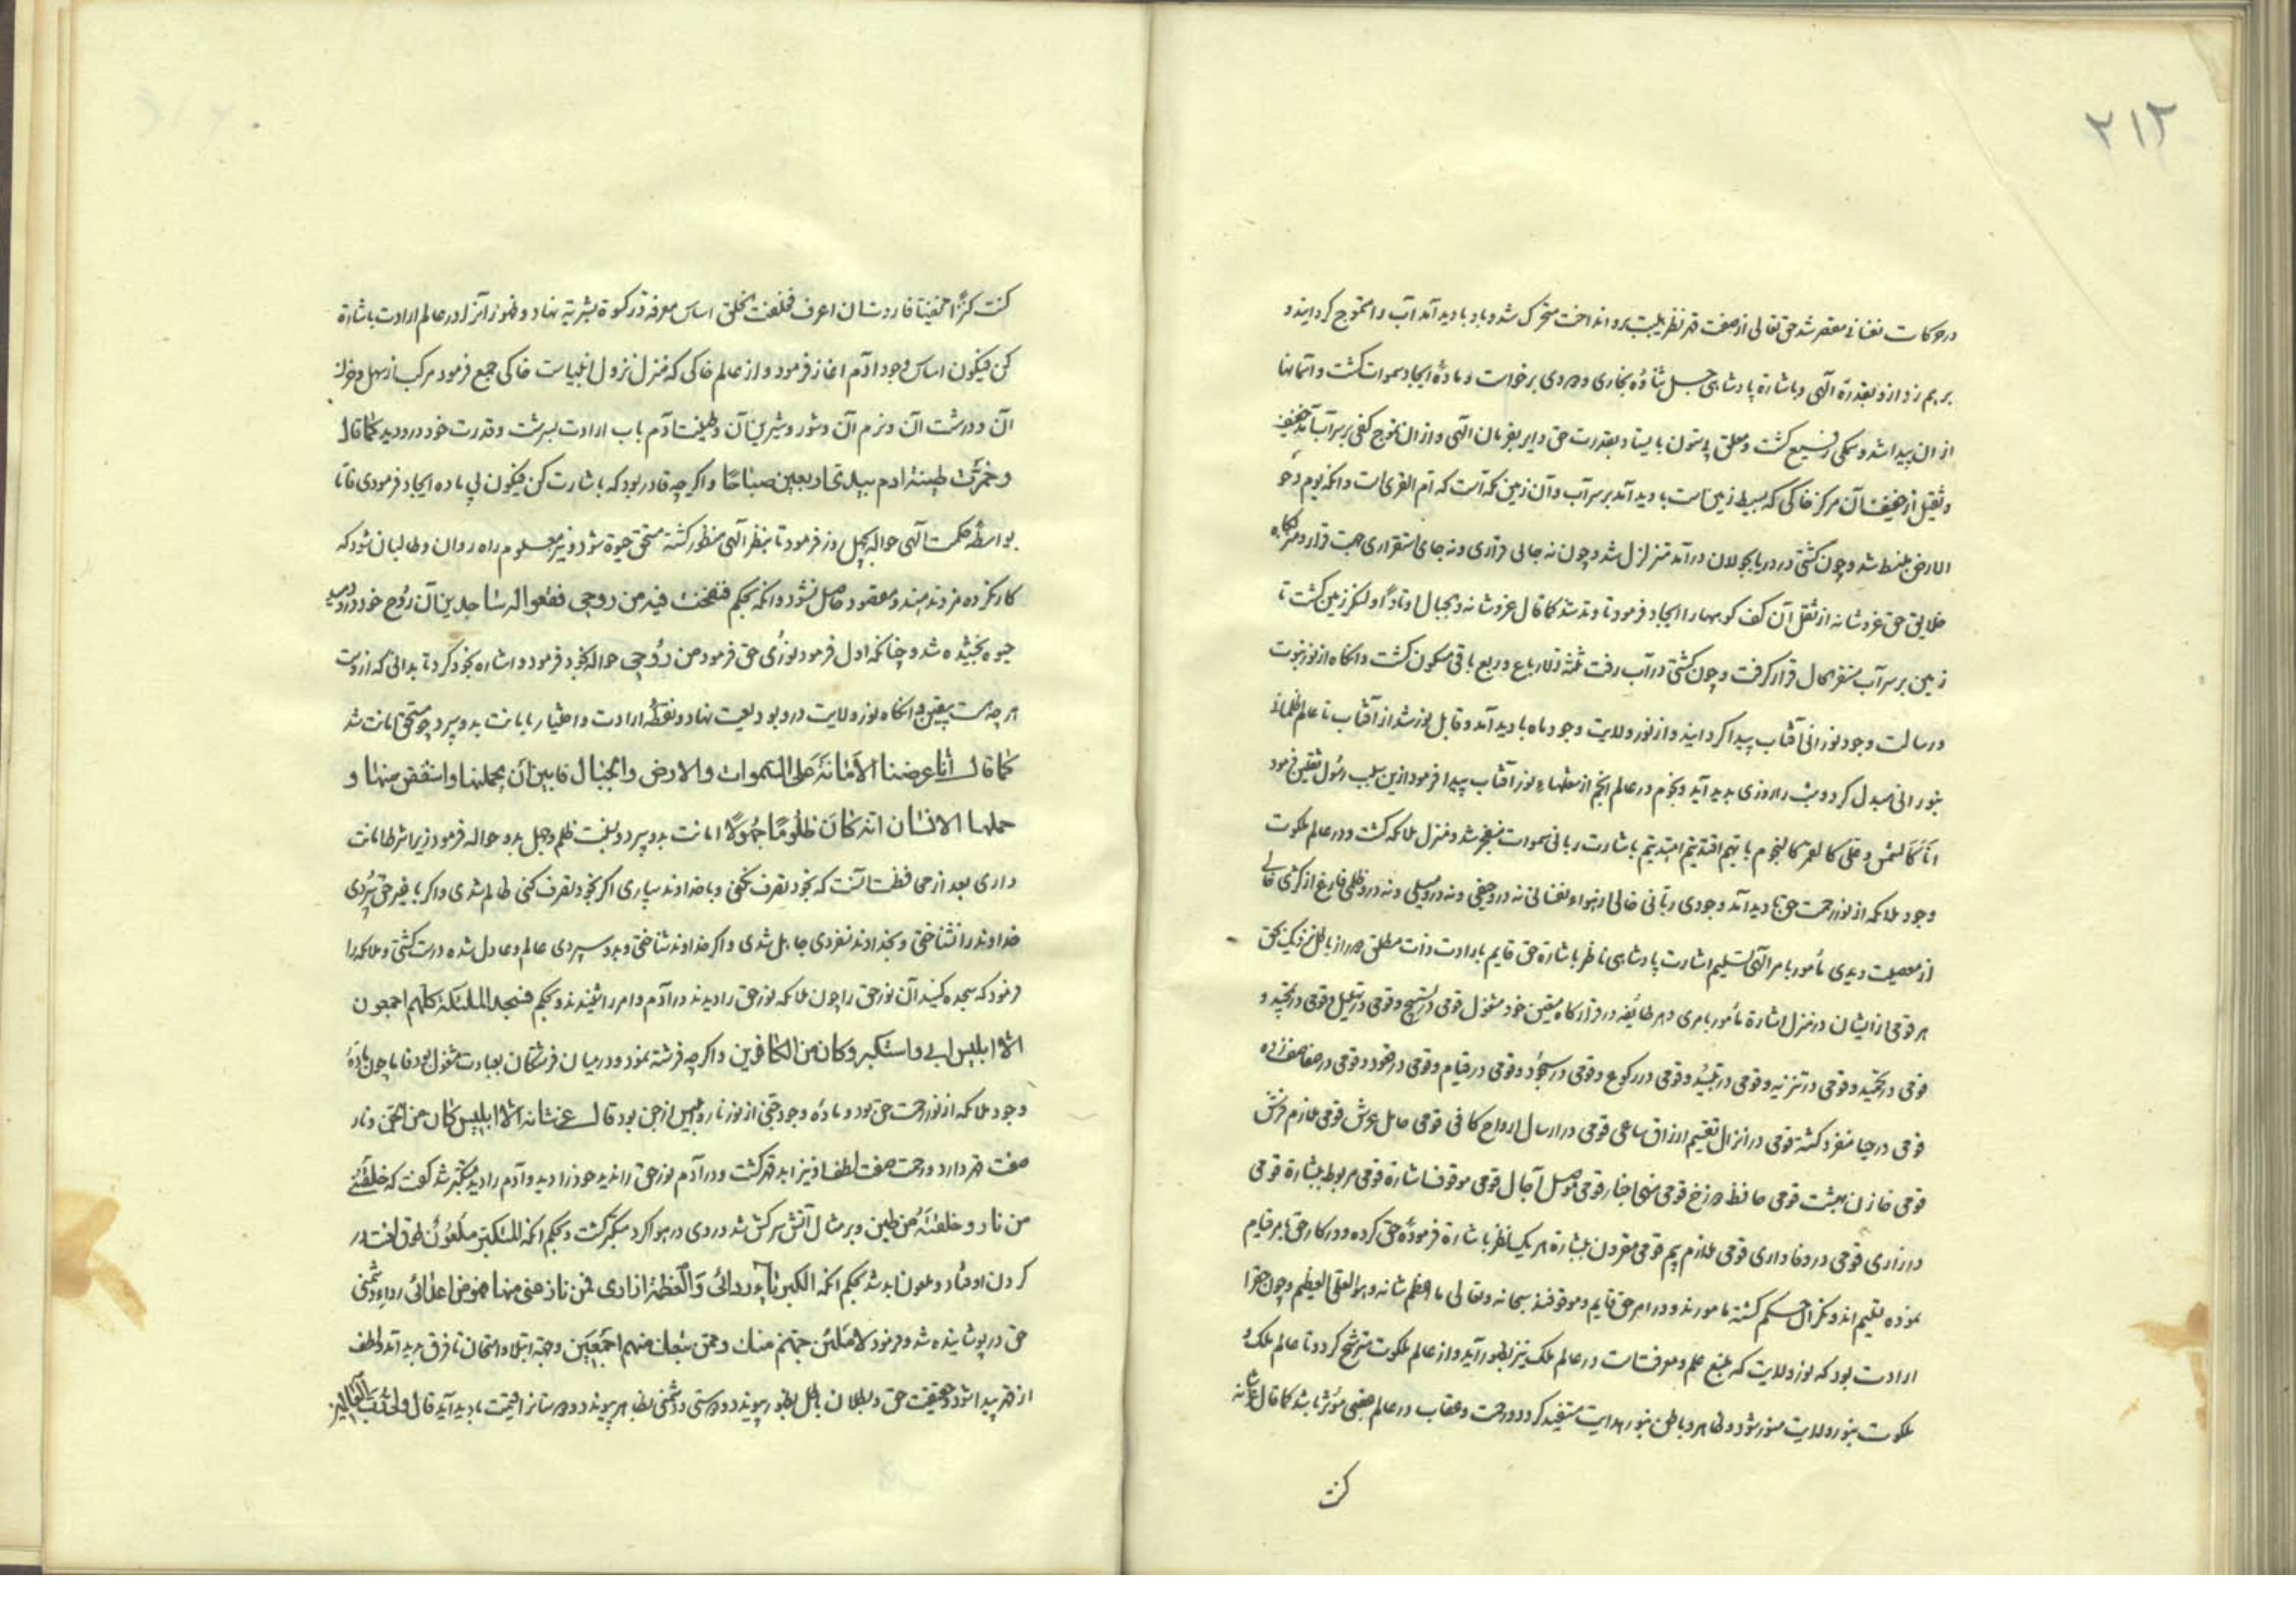 ۲۱۲
در حرکات نفسانی مقصر شد حق تعالی از صفت قهر نظر هیبت برو انداخت متحرک شد و باد بادید آمد آب را متموج کردانید و
بر هم زد از و بقدرة الهی و باشارة پادشاهی بخاری و دودی برخواست و مادۀ ایجاد سموات کشت و آسمانها
از ان پیدا شد و سمکی رفیع کشت و معلق بی ستون بایستاد بقدرت حق دایر بفرمان الهی و از ان تموج کفی بر سر آب آمد خفیف
و ثقیل از خفیف آن مرکز خاکی که بسیط زمین است بادید آمد بر سر آب و آن زمین مکه است که ام القری است و انکه یوم دحو
الارض منبسط شد و چون کشتی در دریا بجولان درآمد متزلزل شد و چون نه جای قراری و نه جای استقراری جهت قرار و
خلایق حق عز و شانه از ثقل آن کف کوهها را ایجاد فرمود تا وتد شد کما قال عز و شانه و الجبال اوتادًا و لنکر زمین کشت تا
زمین بر سر آب مستقر الحال قرار کرفت و چون کشتی در آب رفت ثلثه ارباع و ربع باقی مسکون کشت و انکاه از نور نبوت
و رسالت وجود نورانی آفتاب پیدا کردانید و از نور ولایت وجود ماه بادید آمد و قابل نور شد از آفتاب تا عالم ظلمانی
بنورانی مبدل کردد و شب را روزی پدید آید و نجوم در عالم انجم از شعلهاء نور آفتاب پیدا فرمود ازین سبب رسول ثقلین فرمود
انا کالشمس و علی کالقمر کالنجوم بایهم اقتدیتم اهتدیتم باشارت ربانی سموات منفجر شد و منزل ملائکه کشت و در عالم ملکوت
وجود ملائکه از نور رحمت حق بادید آمد وجودی ربانی خالی از هواء نفسانی نه درو حیفی و نه درو میلی و نه درو ظلمی فارغ از کثری خالی
از معصیت و بدی مأمور بامر الهی تسلیم اشارت پادشاهی ناظر باشارة حق قایم بارادت ذات مطلق دور از باطل نزدیک بحق
هر قومی از ایشان در منزل اشارة مأمور بامری و هر طایفه در قرارکاه معین خود مشغول قومی در تسبیح و قومی در تهلیل و قومی در تمجید و
قومی در تحمید و قومی در تنزیه و قومی در و قومی در رکوع و قومی در سجود و قومی در قیام و قومی در قعود و قومی در صفا صف زده
قومی در جا منفرد کشته قومی در انزال تقسیم ارزاق ساعی قومی در ارسال ارواح کافی قومی حامل عرش قومی ملازم فرش
قومی خازن بهشت قومی حافظ دوزخ قومی منهی اخبار قومی موصل آجال قومی موقوف اشارة قومی مربوط بشارة قومی
در زاری قومی در وفاداری قومی ملازم یم قومی مقرون بشارة هر یک نظر باشارة فرمودۀ حق کرده و در کار حق بامر قیام
نموده تعلیم اند و نکران حکم کشته مامورند و در امر حق قایم و موقوفند سبحانه و تعالی ما اعظم شانه و هو العلی العظیم و چون حق را
ارادت بود که نور ولایت که منبع علم و معرفت است در عالم ملک نیز بظهور آید و از عالم ملکوت مترشح کردد تا عالم ملک و
ملکوت بنور ولایت منور شود و ظاهر و باطن بنور هدایت مستفید کردد و رحمت و عقاب در عالم عقبی مؤثر باشد کما قال عز شانه
کنت
کنت کنزًا مخفیًا فاردت ان اعرف فخلقت الخلق اساس معرفه در کسوة بشریه نهاد و ظهوز آنرا در عالم ارادت باشارة
کن فیکون اساس وجود آدم اغاز فرمود و از عالم خاکی که منزل نزول انبیاست خاکی جمع فرمود مرکب از سهل و حزن
آن و درشت آن و نرم آن و شور و شیرین آن و طینت آدم باب ارادت بسرشت و قدرت خود درو دید کما قال
و خمرّت طینة ادم بیدی اربعین صباحًا و اکر چه قادر بود که باشارت کن فیکون بی ماده ایجاد فرمودی فاما
بواسطه حکمت الهی حواله بچهل روز فرمود تا بنظر الهی منظور کشته مستحق حیوة شود و نیز معلوم راه روان و طالبان شود که
کار نکرده مزد ندهند و مقصود حاصل نشود و انکه بحکم فنفخت فیه من روحی فقعوا له ساجدین آن روح خود درو دمید
حیوه بخشیده شد و چنانکه اول فرمود نوری حق فرمود من روحی حواله بخود فرمود و اشاره بخود کرد تا بدانی که ازوست
هر چه هست بیقین و انکاه نور ولایت درو بودیعت نهاد و نقطۀ ارادت و اختیار بامانت بدو سپرد چو مستحق امانت شد
کما قال انا عرضنا الأمانة علی السموات والارض والجبال فابین أن یحملنها واشفقن منها و
حملها الانسان انه کان ظلومًا جهولًا امانت بدو سپرد و بغت ظلم و جهل بدو حواله فرمود زیرا شرط امانت
داری بعد از محافظت آنست که بخود تصرف نکنی و با خداوند سپاری اکر بخود تصرف کنی ظالم شدی و اکر با غیر حق سپردی
خداوند را نشناختی و بخداوند نسپردی جاهل شدی و اکر خداوند شناختی و بدو سپردی عالم و عادل شده درست کشتی و ملائکه را
فرمود که سجده کنید آن نور حق را چون ملائکه نور حق را دیدند در آدم و امر را شنیدند و بحکم فسجد الملئکة کلهم اجمعون
الا ابلیس ابی واستکبر وکان من الکافرین و اکر چه فرشته نبود و در میان فرشتکان بعبادت مشغول بود فاما چون مادۀ
وجود ملائکه از نور رحمت حق بود و مادۀ وجود جنی از نور نار و ابلیس از جن بود قال عز شانه الا ابلیس کان من الجن و نار
صفت قهر دارد و رحمت صفت لطف نیز ابد قهر کشت و در آدم نور حق را ندید خود را دید و آدم را دید متکبر شد کفت که خلقتنی
من نار وخلقته من طین و بر مثال آتش سرکش شد و دودی در هوا کرد متکبر کشت و بحکم انکه المتکبر ملعون طوق لعنت در
کردن او فتاد و ملعون ابد شد بحکم انکه الکبریاء ردائی والعظمة ازاری فمن نازعنی منها فهو من اعدائی رداء دشمنی
حق در پوشانیده شد و فرمود لأملئن جهنم منک وممن تبعک منهم اجمعین و جهة ابتلا و امتحان تا فرق پدید آید و لطف
از قهر پیدا شود و حقیقت حق و بطلان باطل بظهور پیوندد و دوستی و دشمنی بظاهر پیوندد و دوستانرا قیمت بادید آید قال